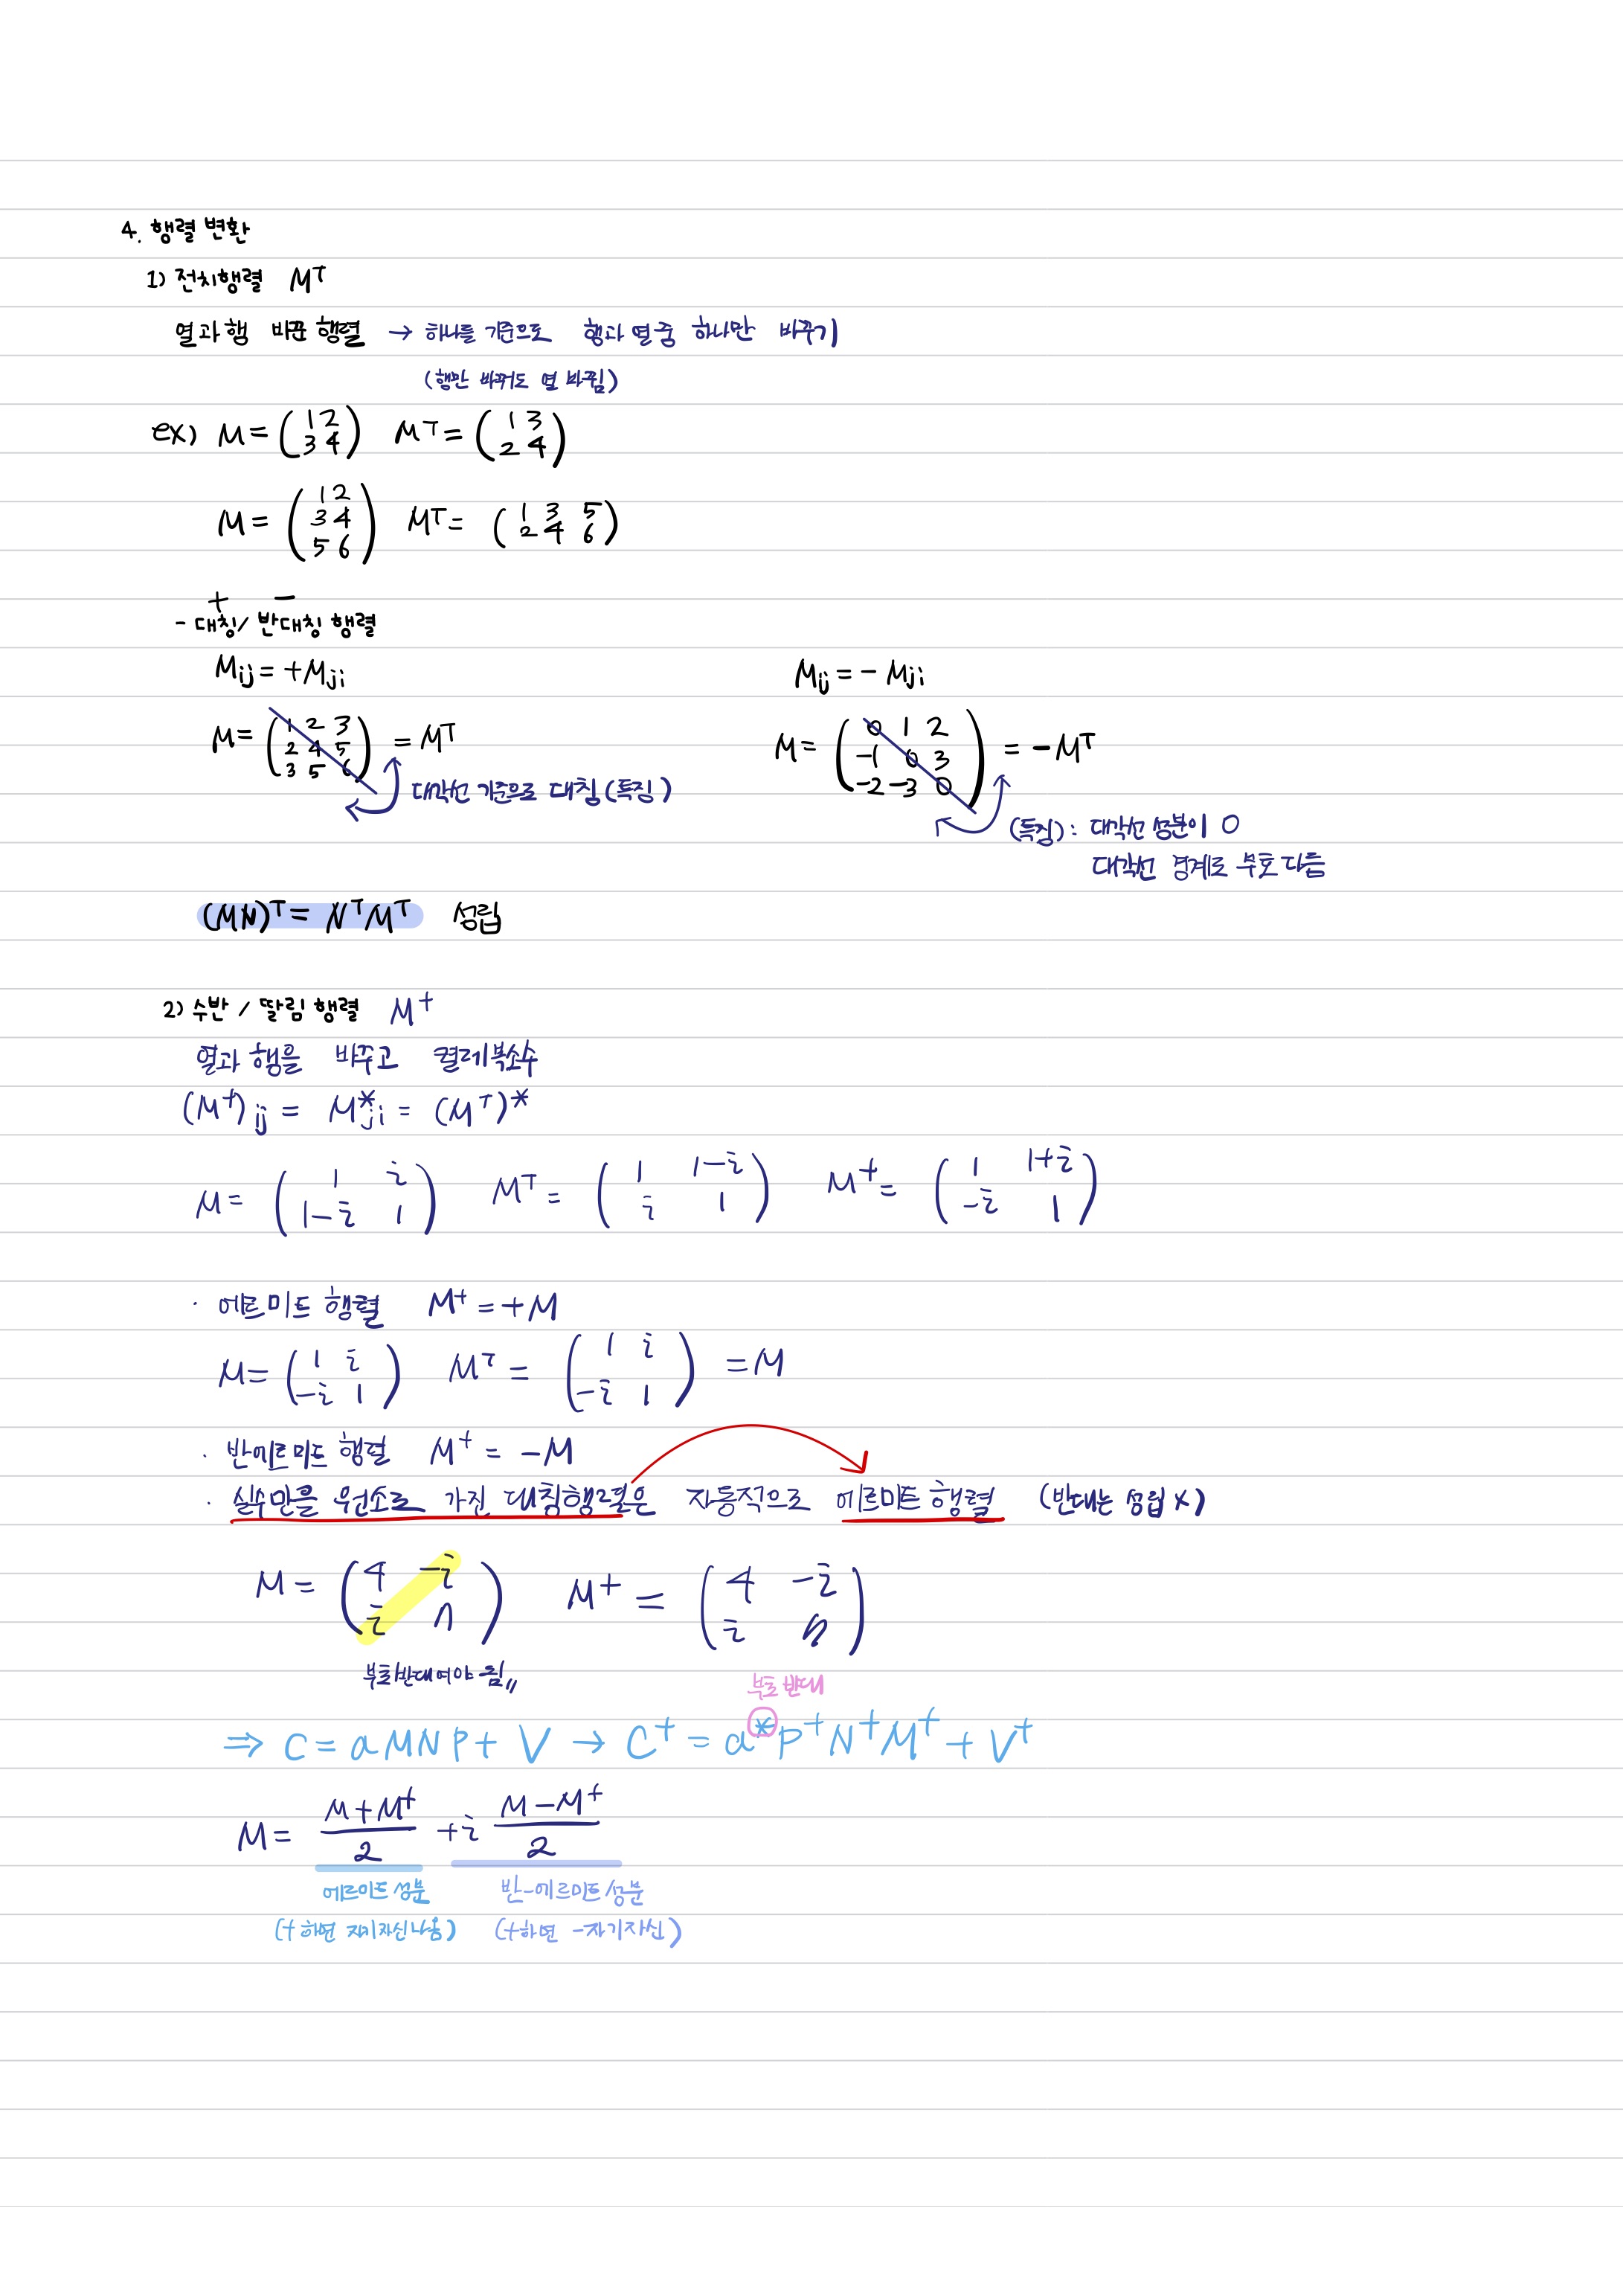 4. 행렬 변환
1) 전치행렬 Mᵀ
열과 행 바꾼 행렬 → 하나를 기준으로 행과 열 중 하나만 바꾸기
(행만 바꿔도 열 바뀜)
ex) M = (1 2 / 3 4) Mᵀ = (1 3 / 2 4)
M = (1 2 / 3 4 / 5 6) Mᵀ = (1 3 5 / 2 4 6)
+ −
- 대칭 / 반대칭 행렬
Mij = +Mji Mij = −Mji
M = (1 2 3 / 2 4 5 / 3 5 6) = Mᵀ M = (0 1 2 / −1 0 3 / −2 −3 0) = −Mᵀ
대각선 기준으로 대칭 (특징)
(특징) : 대각선 성분이 0
대각선 경계로 부호 다름
(MN)ᵀ = NᵀMᵀ 성립
2) 수반 / 딸림 행렬 M†
열과 행을 바꾸고 켤레복소수
(M†)ij = M*ji = (Mᵀ)*
M = (1 i / 1−i 1) Mᵀ = (1 1−i / i 1) M† = (1 1+i / −i 1)
· 에르미트 행렬 M† = +M
M = (1 i / −i 1) Mᵀ = (1 i / −i 1) = M
· 반에르미트 행렬 M† = −M
· 실수만을 원소로 가진 대칭행렬은 자동적으로 에르미트 행렬 (반대는 성립 X)
M = (4 −i / i n) M† = (4 −i / i n)
부호반대여야 됨,,
부호 반대
⇒ C = aMNP + V → C† = a*P†N†M† + V†
M = (M+M†)/2 + i (M−M†)/2
에르미트 성분 반-에르미트 성분
(†하면 자기자신 나옴) (†하면 −자기자신)